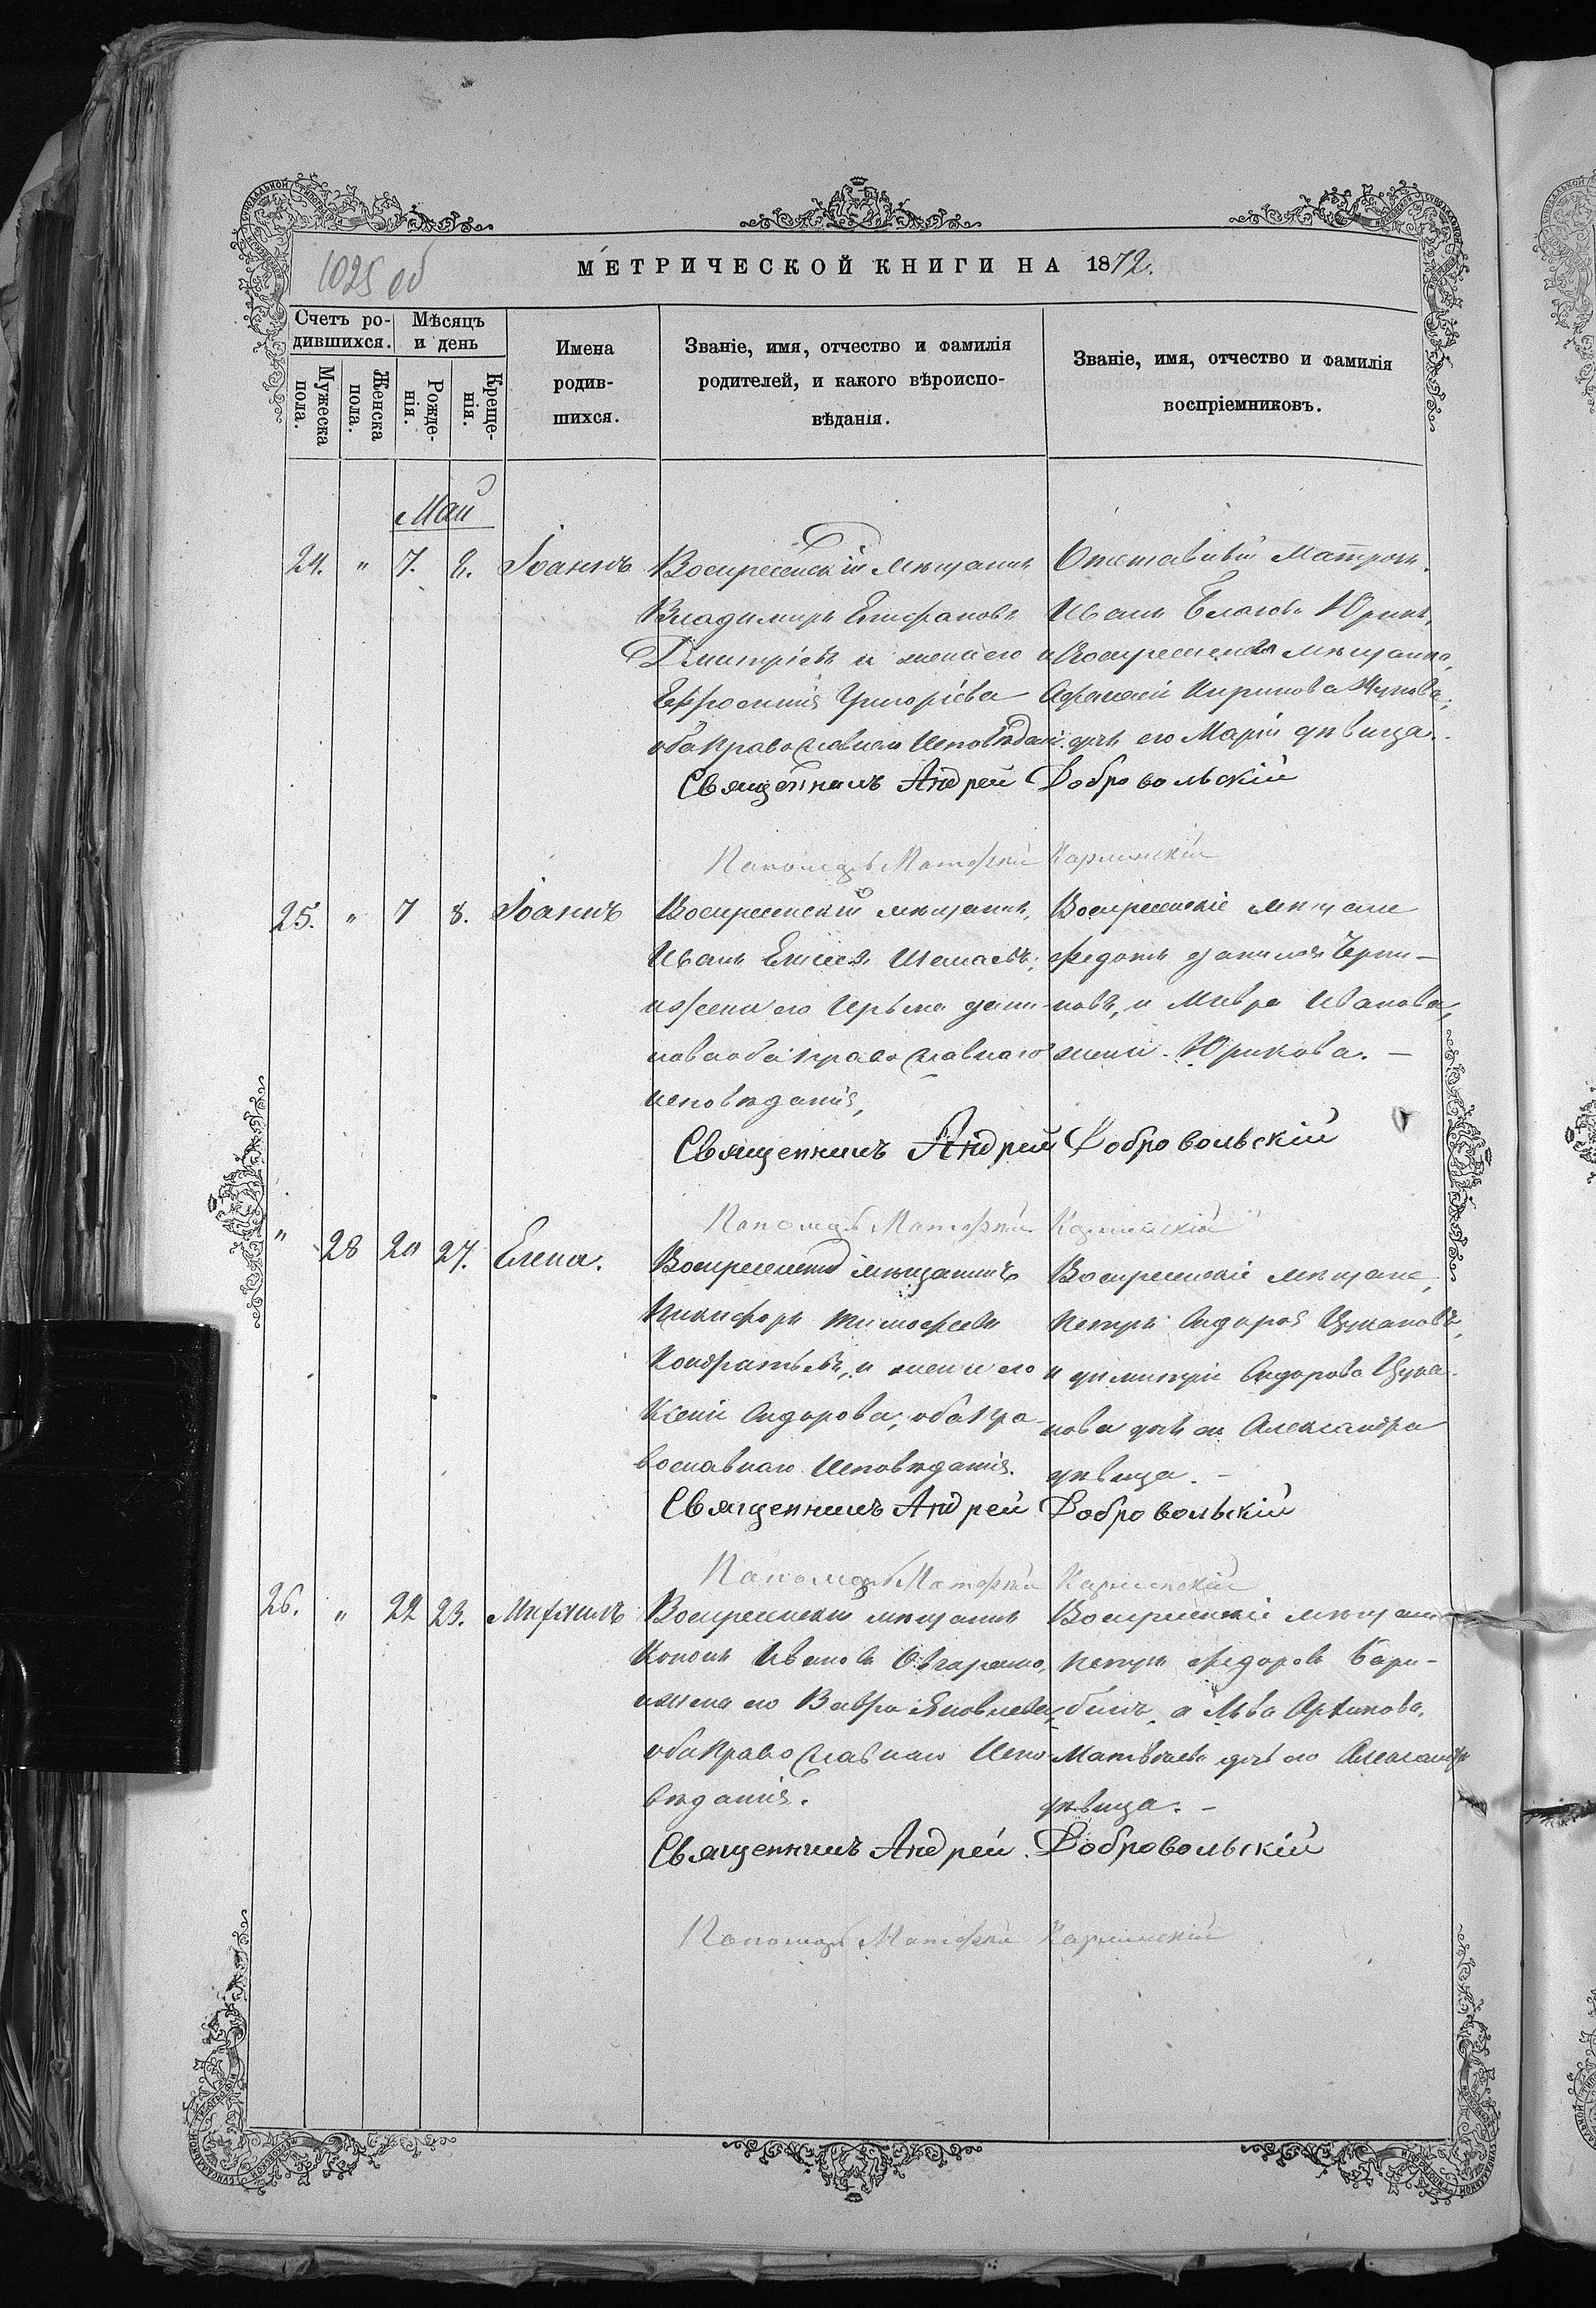 1025 об
МЕТРИЧЕСКОЙ КНИГИ НА 1872.
Счетъ ро-
дившихся.
Мѣсяцъ
и день
Мужеска
пола.
Женска
пола.
Рожде-
нія.
Креще-
нія.
Имена
родив-
шихся.
Званіе, имя, отчество и фамилія
родителей, и какого вѣроиспо-
вѣданія.
Званіе, имя, отчество и фамилія
воспріемниковъ.
Май
24. " 7. 8. Іоаннъ
Воскресенскій мѣщанинъ
Владимиръ Епифановъ
Дмитріевъ и жена его
Ефросинія Григорьева
оба Православнаго Исповѣдані.
Отставной Матрозъ
Иванъ Юринъ,
и Воскресенскаго мѣщанина,
Кирилова
дчь его Марія дѣвица.
Священникъ Андрей Добровольскій
Пономарь Матофей
25. " 7 8. Іоаннъ
Воскресенскій мѣщанинъ,
Иванъ
и жена его Ирина Дани-
лова оба православнаго
исповѣданія,
Воскресенскіе мѣщане
Федотъ Даниловъ
и Мавра Иванова,
Юрикова. —
Священникъ Андрей Добровольскій
Пономарь Матофей
" 28 20 27. Елена.
Воскресенскій мѣщанинъ
Никифоръ Тимофеевъ
Кондратьевъ, и жена его
Ксенія Сидорова, оба Пра-
вославнаго Исповѣданія.
Воскресенскіе мѣщане,
Петръ Сидоровъ Цукановъ,
и Димитрія Сидорова Цука-
нова дчь его Александра
дѣвица. —
Священникъ Андрей Добровольскій
Пономарь Матофей
26. " 22 23. Михаилъ
Воскресенскій мѣщанинъ
Кононъ Ивановъ Овчаренко,
и жена его Вавра Яковлева,
оба Православнаго Испо-
вѣданія.
Воскресенскіе мѣщане
Петръ Федоровъ
и Льва Архипова,
дчь его Александра
дѣвица. —
Священникъ Андрей Добровольскій
Пономарь Матофей